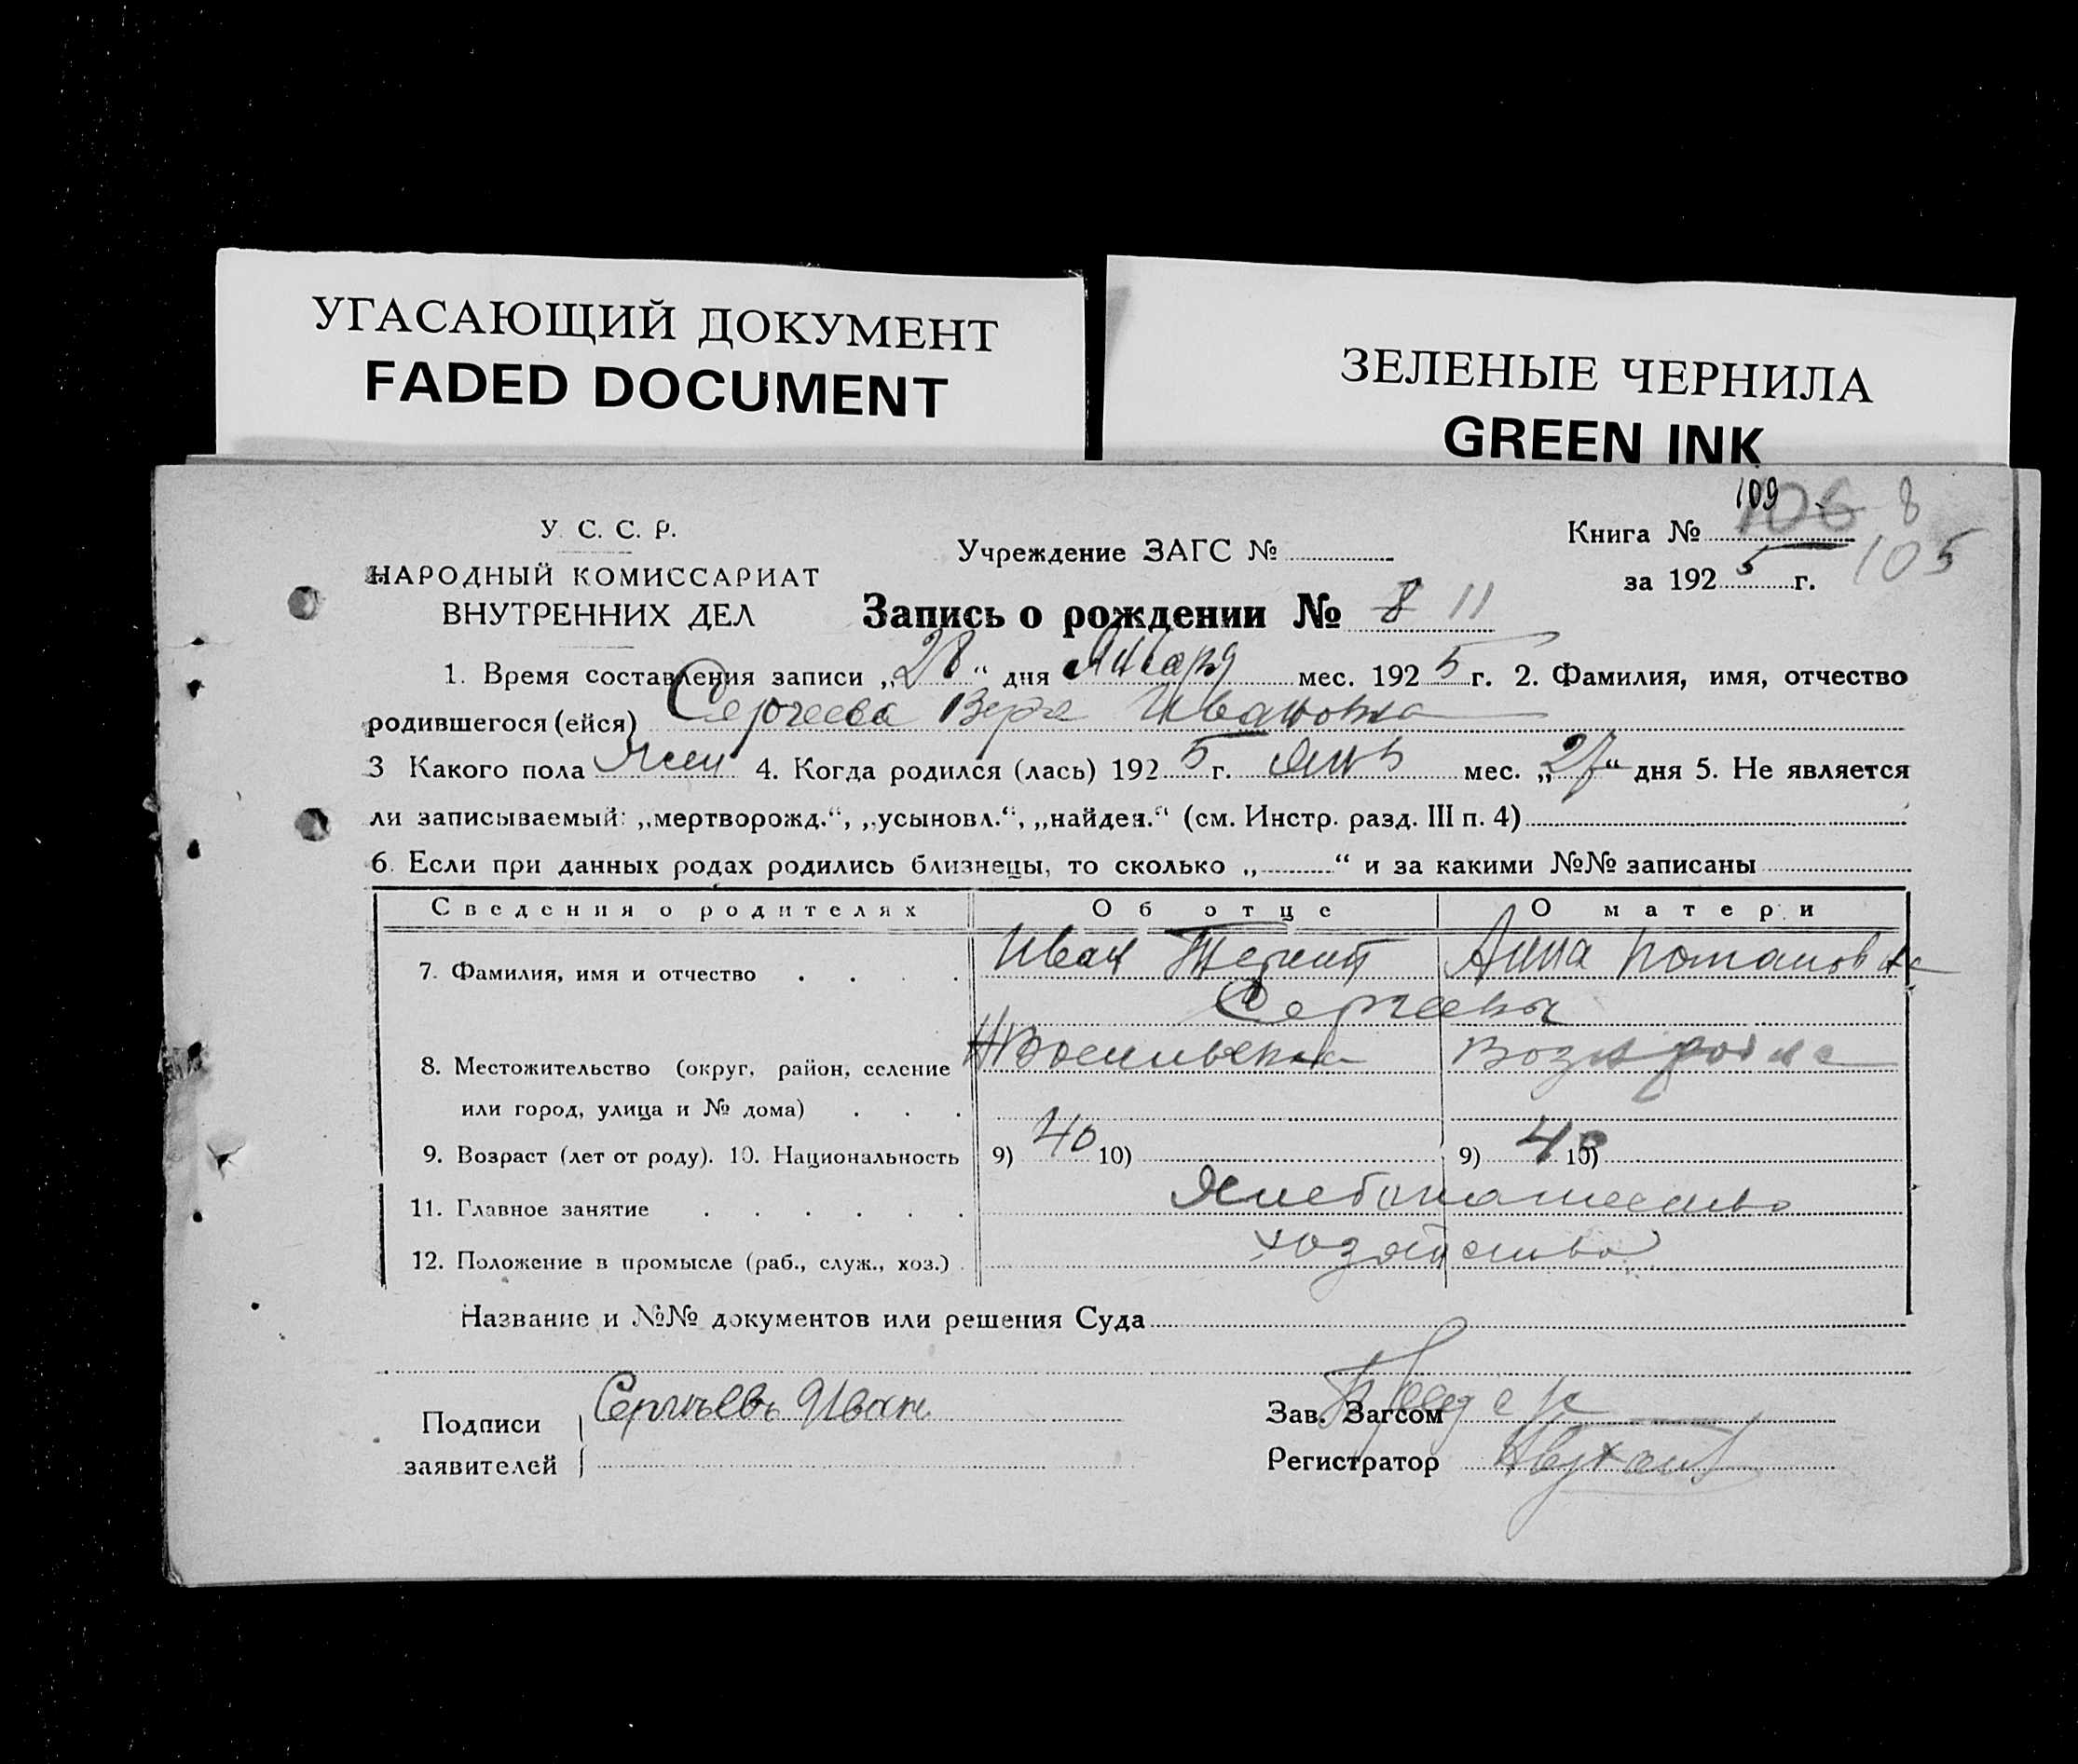 УГАСАЮЩИЙ ДОКУМЕНТ
FADED DOCUMENT
ЗЕЛЕНЫЕ ЧЕРНИЛА
GREEN INK
У. С. С. Р.
НАРОДНЫЙ КОМИССАРИАТ
ВНУТРЕННИХ ДЕЛ
Учреждение ЗАГС №
109
Книга № 106 8
за 1925 г. 105
Запись о рождении № 8 11
1. Время составления записи „28“ дня Января мес. 1925 г. 2. Фамилия, имя, отчество
родившегося (ейся) Сергеева Вера Ивановна
3 Какого пола жен 4. Когда родился (лась) 1925 г. Янв мес. „27“ дня 5. Не является
ли записываемый: „мертворожд.“, „усыновл.“, „найден.“ (см. Инстр. разд. III п. 4)
6. Если при данных родах родились близнецы, то сколько „ “ и за какими №№ записаны
Сведения о родителях Об отце О матери
7. Фамилия, имя и отчество Иван Терент Анна Потаповна
Сергеевы
8. Местожительство (округ, район, селение
или город, улица и № дома)
9. Возраст (лет от роду). 10. Национальность 9) 40 10) 9) 40 10)
11. Главное занятие Хлебопашество
12. Положение в промысле (раб., служ., хоз.) хозяйство
Название и №№ документов или решения Суда
Подписи Сергъевъ Иван
заявителей
Зав. Загсом
Регистратор